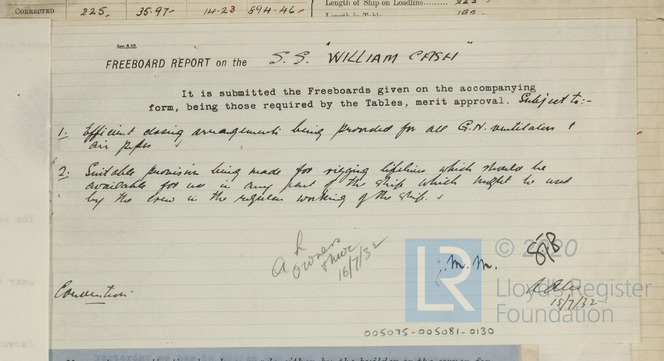 CORRECTED 225. 35.97 14.23 894.46
Length of Ship on Loadline
FREEBOARD REPORT on the S.S. "WILLIAM CASH"
It is submitted the Freeboards given on the accompanying
form, being those required by the Tables, merit approval. Subject to:-
1. Efficient closing arrangements being provided for all G.N. ventilators &
air pipes
2. Suitable provision being made for rigging lifelines which should be
available for use in any part of the ship which might be used
by the crew in the regular working of the ship.
Owners
16/7/32
M.M.
Convention
15/7/32
LR
© 2020
Lloyd's Register
Foundation
005075-005081-0130